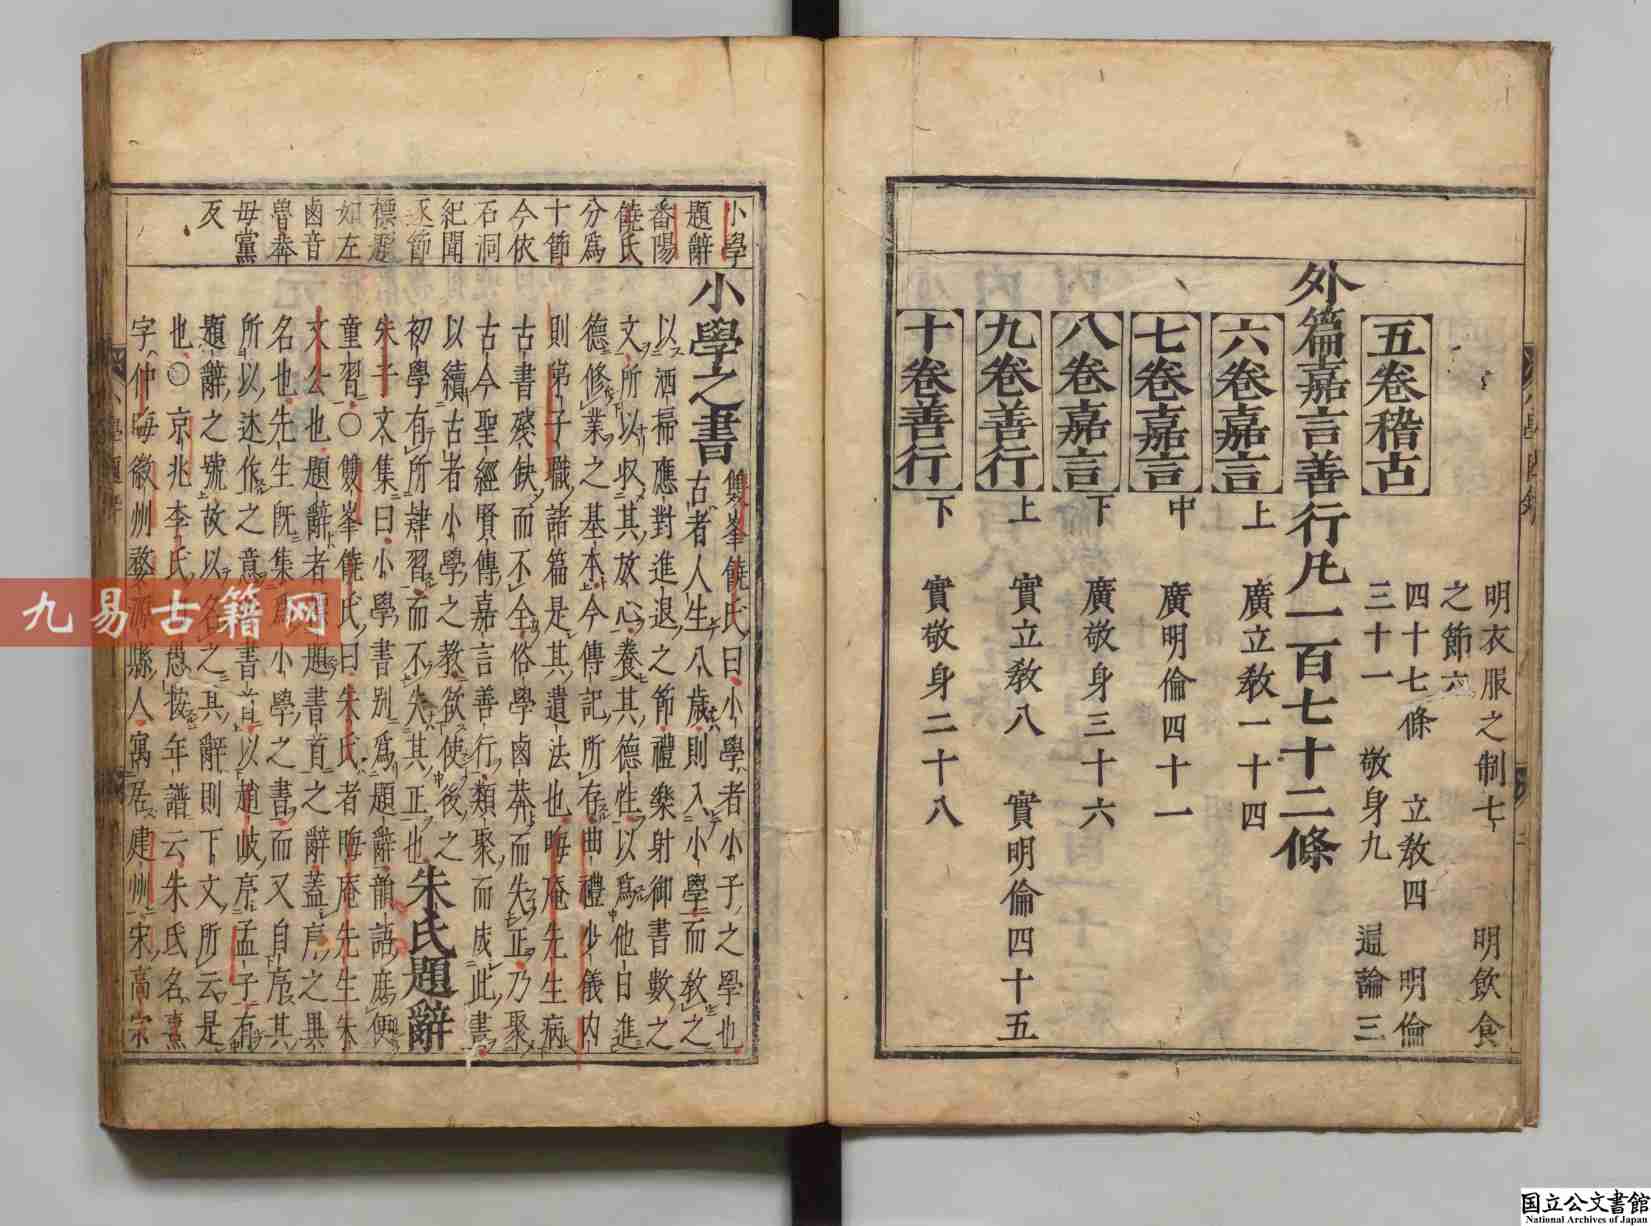 明衣服之制七　明飲食
之節六
四十七條　立教四　明倫
三十一　敬身九　通論三
五卷稽古
外篇嘉言善行凡一百七十二條
六卷嘉言上　廣立教一十四
七卷嘉言中　廣明倫四十一
八卷嘉言下　廣敬身三十六
九卷善行上　實立教八　實明倫四十五
十卷善行下　實敬身二十八
小學
題辭
番陽
饒氏
分爲
十節
今依
石洞
紀聞
逐節
標題
如左
鹵音
魯莽
毋黨
反
小學之書
雙峯饒氏曰小學者小子之學也
古者人生八歲則入小學而教之
以洒掃應對進退之節禮樂射御書數之
文所以収其放心養其德性以爲他日進
德修業之基本今傳記所存曲禮少儀内
則弟子職諸篇是其遺法也晦庵先生病
古書殘缺而不全俗學鹵莽而失正乃聚
古今聖經賢傳嘉言善行類聚而成此書
以續古者小學之教欲使後之
初學有所肄習而不失其正也
朱氏題辭
朱子文集曰小學書别爲題辭韻語庶便
童習〇雙峯饒氏曰朱氏者晦庵先生朱
文公也題辭者題書首之辭蓋序之異
名也先生旣集爲小學之書而又自序其
所以述作之意書首以趙岐序孟子有
題辭之號故以名之其辭則下文所云是
也〇京兆李氏愚按年譜云朱氏名熹
字仲晦徽州婺源縣人寓居建州宋高宗
九易古籍网
国立公文書館
National Archives of Japan